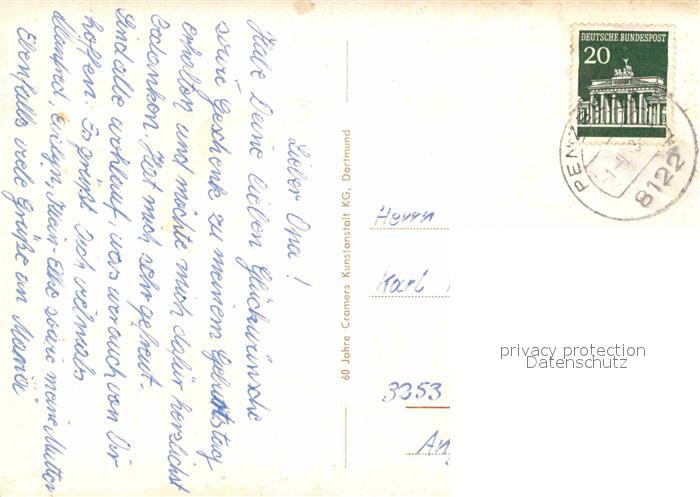 Lieber Opa!
Habe Deine lieben Glückwünsche
sowie Geschenk zu meinem Geburtstag
erhalten und möchte mich dafür herzlichst
bedanken. Hat mich sehr gefreut.
Sind alle wohlauf, was wir auch von Dir
hoffen. Es grüßt Dich vielmals
Manfred, Evelyn, Klein-Elke sowie meine Mutter
Ebenfalls viele Grüße an Maria
60 Jahre Cramers Kunstanstalt KG, Dortmund
DEUTSCHE BUNDESPOST
20
PENZ
8122
Herrn
Karl
3353
privacy protection
Datenschutz